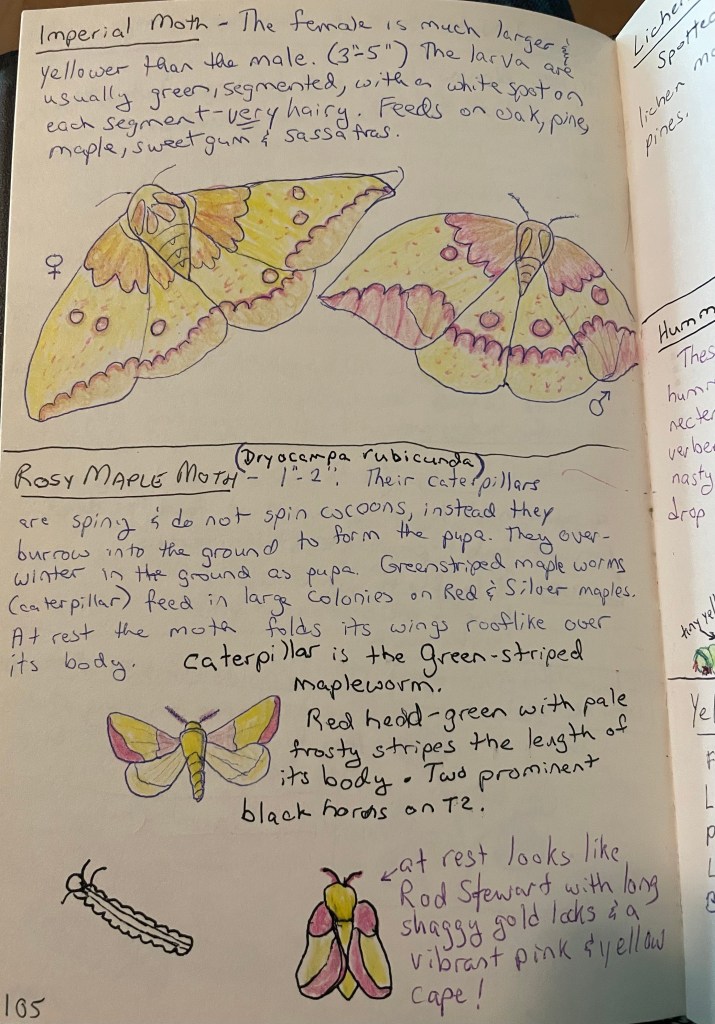 Imperial Moth - The female is much larger &
yellower than the male. (3"-5") The larva are
usually green, segmented, with a white spot on
each segment - very hairy. Feeds on oak, pine,
maple, sweetgum & sassafras.
♀
♂
(Dryocampa rubicunda)
ROSY MAPLE MOTH - 1"-2". Their caterpillars
are spiny & do not spin cocoons, instead they
burrow into the ground to form the pupa. They over-
winter in the ground as pupa. Greenstriped maple worms
(caterpillar) feed in large colonies on Red & Silver maples.
At rest the moth folds its wings rooflike over
its body. Caterpillar is the Green-striped
mapleworm.
Red head-green with pale
frosty stripes the length of
its body. Two prominent
black horns on T2.
at rest looks like
Rod Stewart with long
shaggy gold locks & a
vibrant pink & yellow
cape!
105
Lichen
Spotted
lichen mo
pines.
Humm
Thes
humm
necter
verbe
nasty
drop
tiny yell
Yel